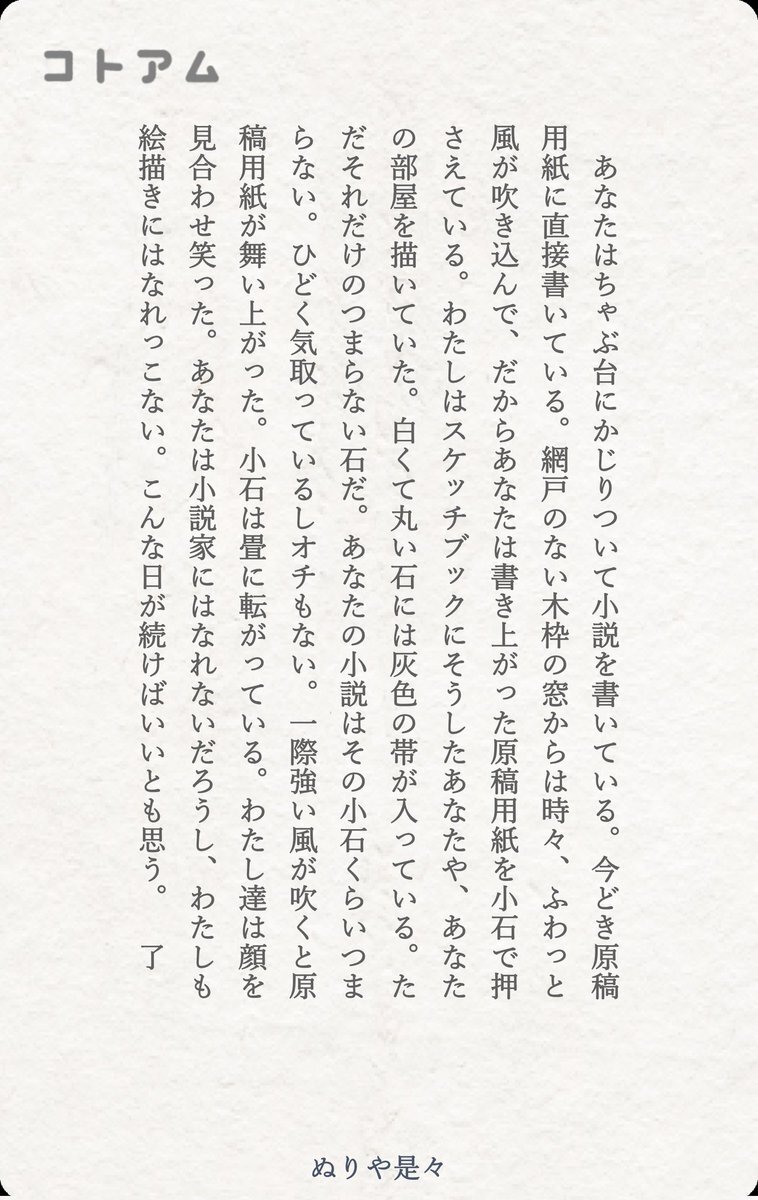 コトアム
　あなたはちゃぶ台にかじりついて小説を書いている。今どき原稿
用紙に直接書いている。網戸のない木枠の窓からは時々、ふわっと
風が吹き込んで、だからあなたは書き上がった原稿用紙を小石で押
さえている。わたしはスケッチブックにそうしたあなたや、あなた
の部屋を描いていた。白くて丸い石には灰色の帯が入っている。た
だそれだけのつまらない石だ。あなたの小説はその小石くらいつま
らない。ひどく気取っているしオチもない。一際強い風が吹くと原
稿用紙が舞い上がった。小石は畳に転がっている。わたし達は顔を
見合わせ笑った。あなたは小説家にはなれないだろうし、わたしも
絵描きにはなれっこない。こんな日が続けばいいとも思う。　了
ぬりや是々